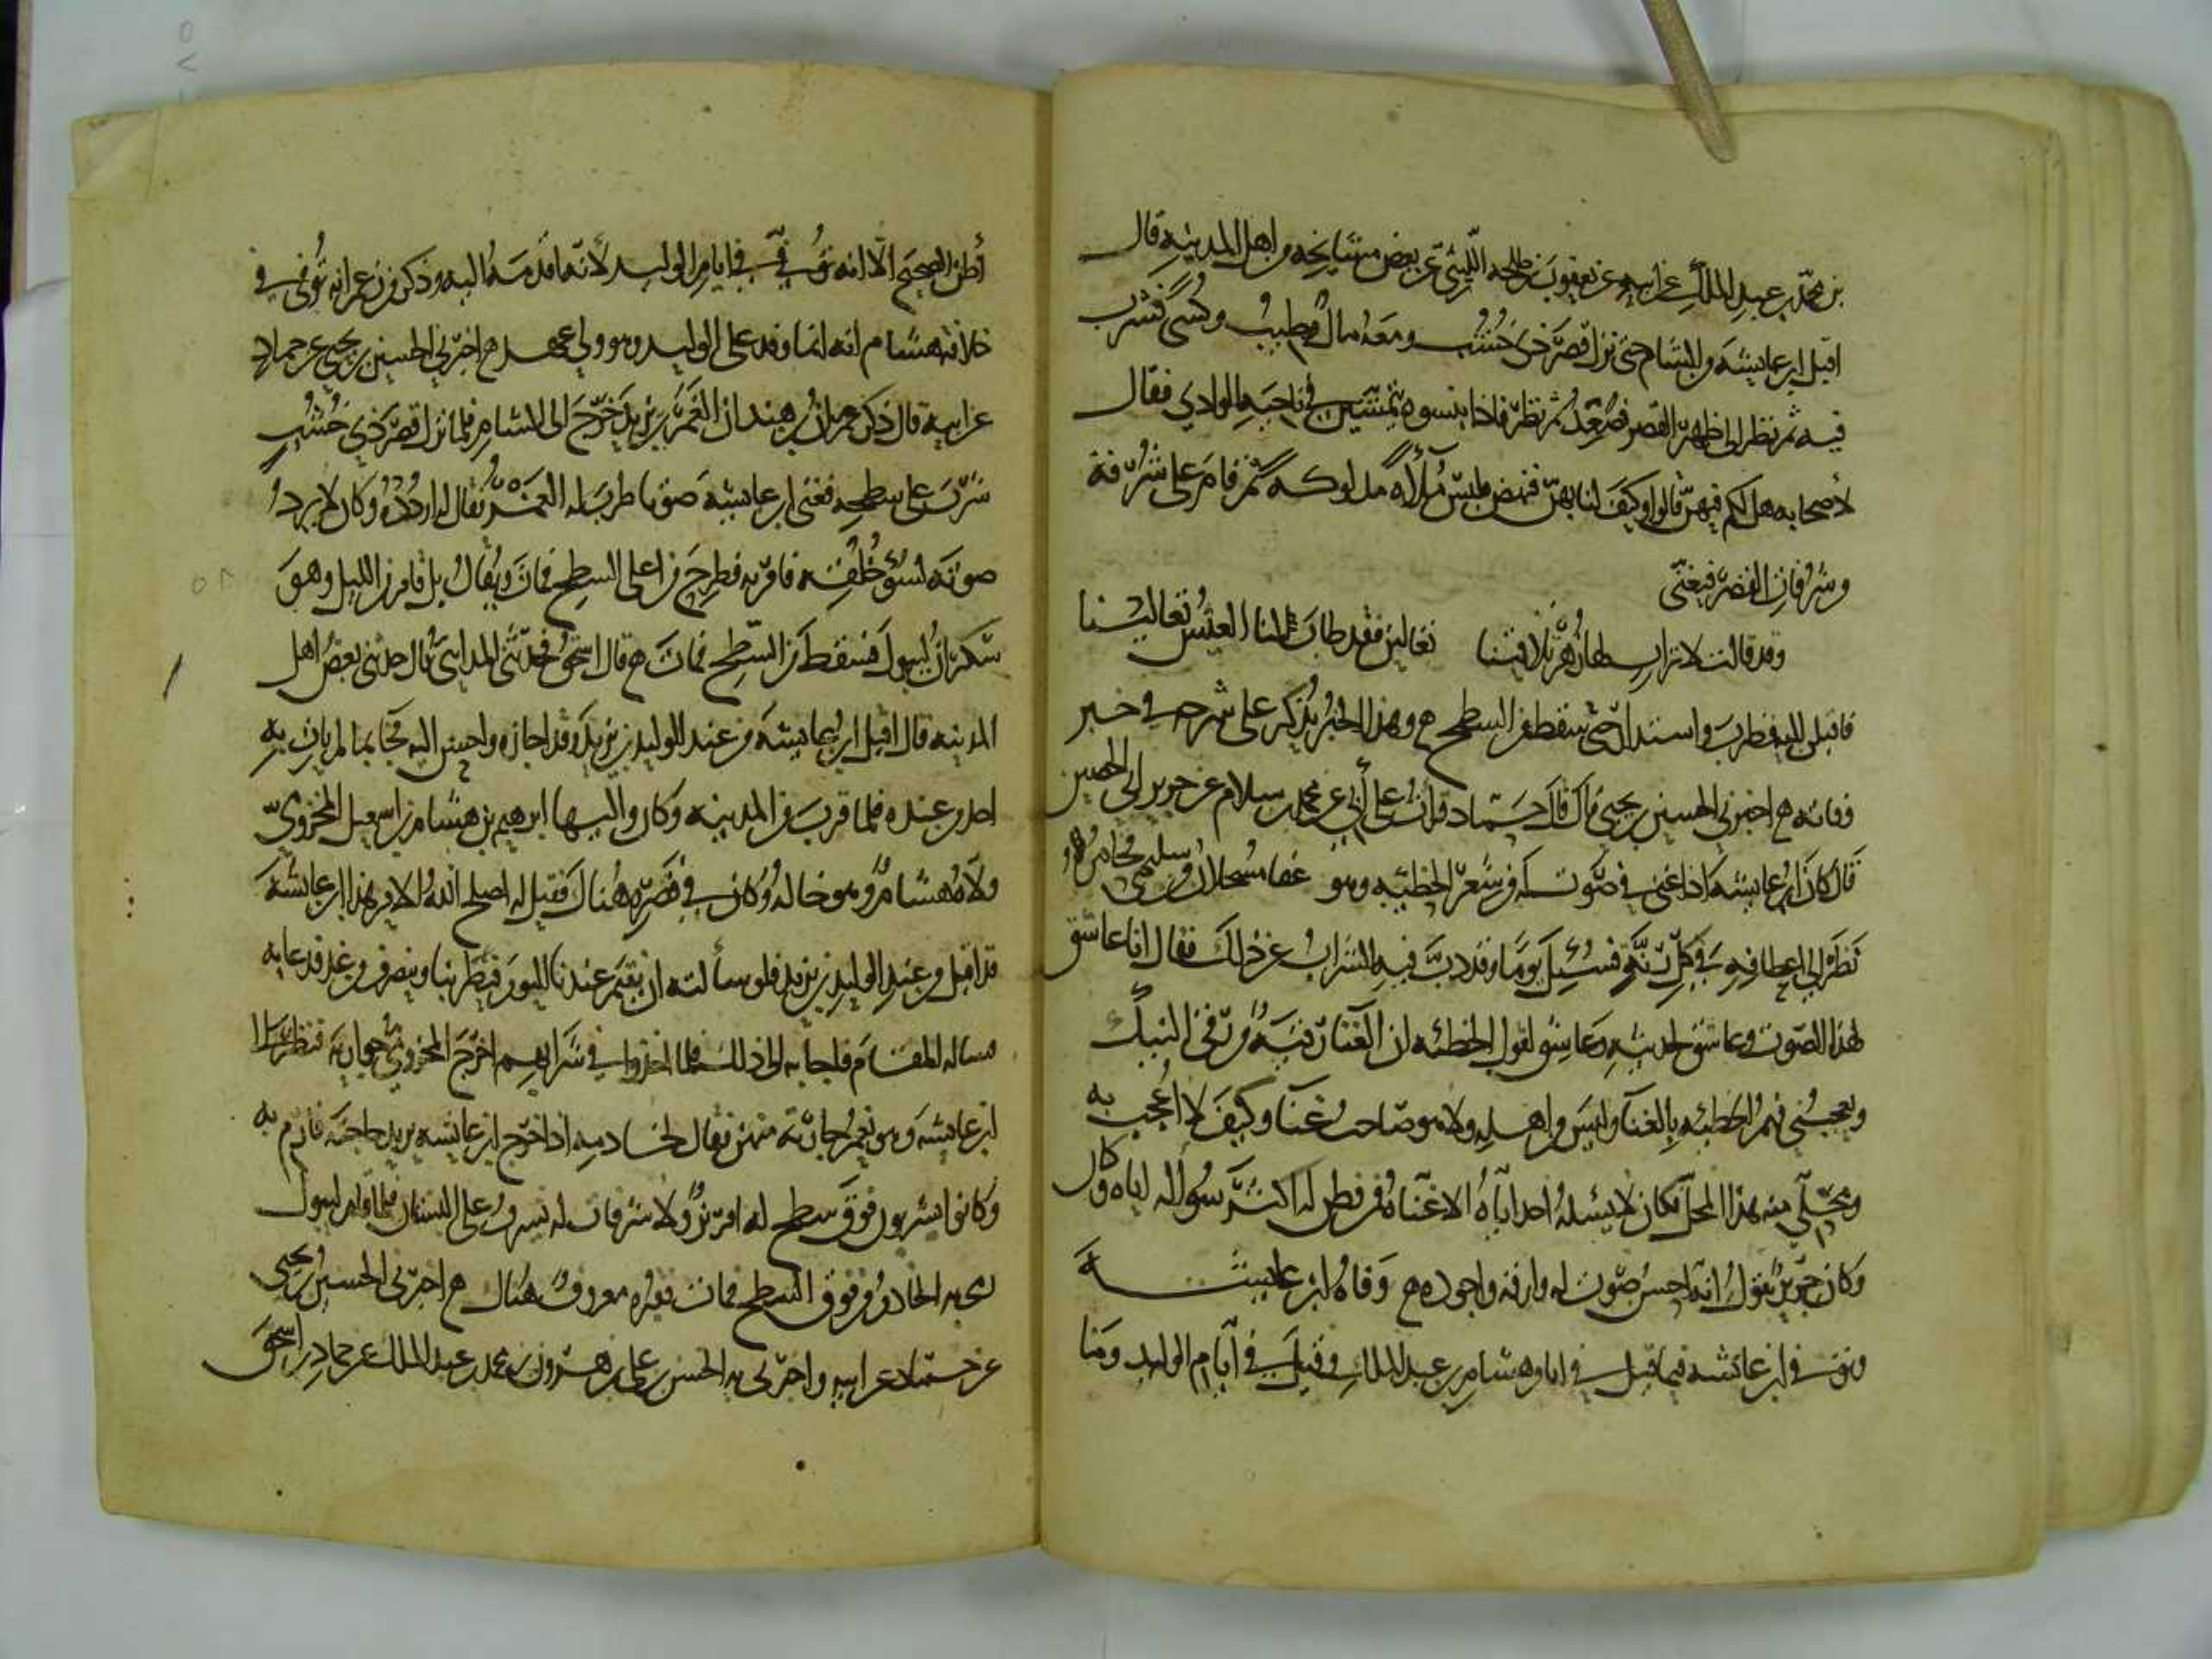 بن محمد بن عبد الملك عن ابيه عن يعقوب بن طلحه الليثي عن بعض مشايخه من اهل المدينه قال
اقبل ابن عايشه من الشام حتى نزل قصر ذي خشب ومعه مال وطيب وكسى فشرب
فيه ثم نظر الى ظهر القصر فصعد ثم نظر فاذا بنسوه يتمشين في ناحيه الوادي فقال
لاصحابه هل لكم فيهن قالوا وكيف لنا بهن فنهض فلبس ملاءه مدلوكه ثم قام على شرفة
من شرفات القصر فيغنى
وقد قالت لاتراب لها زهر تلاقينا تعالين فقد طاب لنا العيش تعالينا
فاقبلن اليه فطرب واستدار حتى سقط من السطح وهذا الخبر يذكر على شرحه في خبر
وفاته اخبرني الحسين بن يحيى قال قال حماد قرات على ابي عن محمد بن سلام عن جرير ابي الحصين
قال كان ابن عايشه اذا غنى في صوت له من شعر الحطيئه وهو عفا مسحلان من سليمى فحامره
نظر الى اعطافه في كل رنة فسئل يوما وقد دب فيه الشراب عن ذلك فقال انا عاشق
لهذا الصوت وعاشق لحديثه وعاشق لقول الحطئه ان الغنا رقيه من رقى النيك
ويعجبني فهم الحطئه بالغنا وليس من اهله ولا هو صاحب غنا وكيف لا اعجب به
ومحلي منه هذا المحل فكان لا يسئله احد اياه الا غناه فمن فطن له اكثر سواله اياه وكان
وكان جرير يقول انه احسن صوت له وارقه واجوده وفاه ابن عايشه
وتوفي ابن عائشه فيما قيل في ايام هشام بن عبد الملك وقيل في ايام الوليد وما
أظن الصحيح الا انه توفي في ايام الوليد لانه اقدمه اليه وذكر من زعم انه توفى في
خلافة هشام انه انما وفد على الوليد وهو ولي عهد اخبرني الحسين بن يحيى عن حماد
عن ابيه قال ذكر عمران بن هند ان الغمر بن يزيد خرج الى الشام فلما نزل قصر ذي خشب
شرب على سطحه فغنى ابن عايشه صوتا طرب له الغمر فقال له اردده وكان لا يردد
صوته لسوء خلقه فامر به فطرح من اعلى السطح فمات ويقال بل قام من الليل وهو
سكران ليبول فسقط من السطح فمات قال اسحق فحدثنى المدايني قال حدثني بعض اهل
المدينه قال اقبل ابن عايشه من عند الوليد بن يزيد وقد اجازه واحسن اليه فجا بما لم يات به
احد من عنده فلما قرب من المدينه وكان واليها ابرهيم بن هشام بن اسمعيل المخزومي
ولاه هشام وهو خاله وكان في قصره هناك فقيل له اصلح الله الامير هذا ابن عايشه
قد اقبل من عند الوليد بن يزيد فلو سألته ان يقيم عندنا اليوم فيطربنا وينصرف من غد فدعا به
فساله المقام فاجابه الى ذلك فلما اخذوا في شرابهم اخرج المخزومي جواريه فنظر الى
ابن عايشه وهو يغمز جارية منهن فقال لخادمه اذا خرج ابن عايشه يريد حاجته فارم به
وكانوا يشربون فوق سطح له افريز ولا شرفات له يشرف على البستان فلما قام ليبول
رمى به الخادم من فوق السطح فمات فقبره معروف هناك اخبرني الحسين بن يحيى
عن حماد عن ابيه واخبرني به الحسن بن علي عن هرون بن محمد بن عبد الملك عن حماد بن اسحق